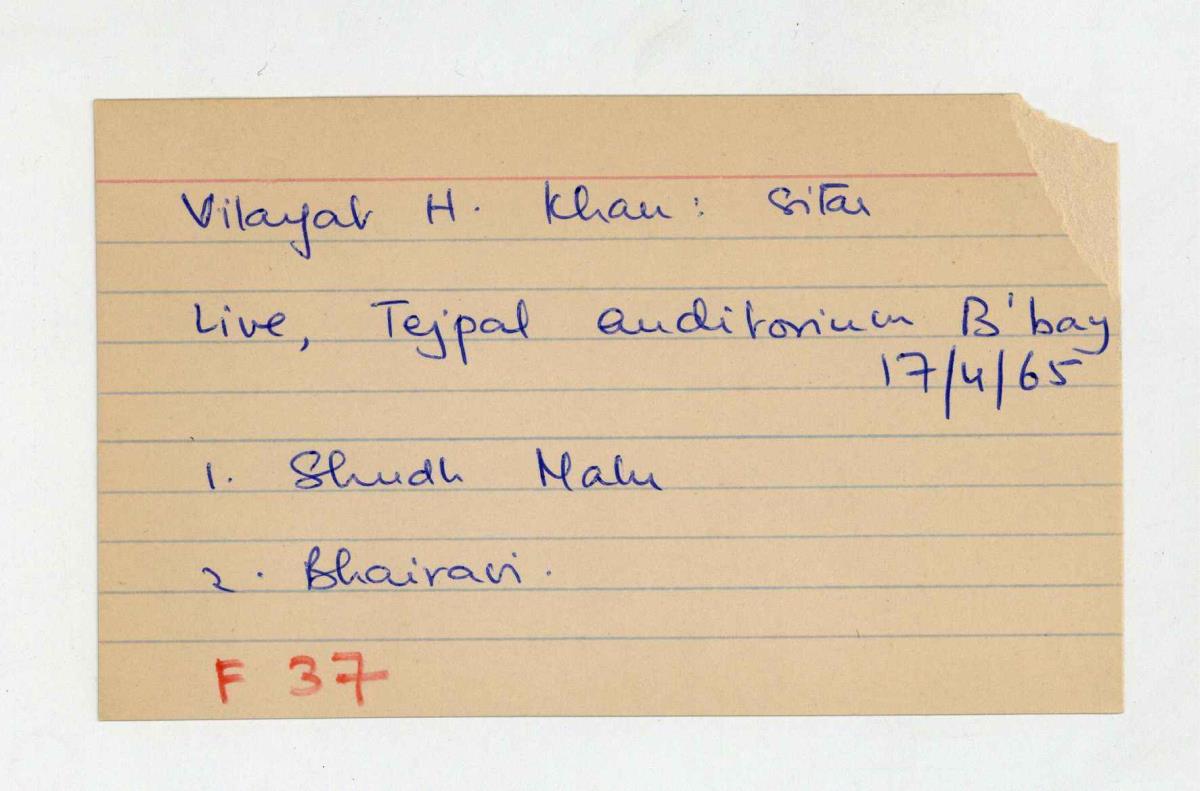 Vilayat H. Khan: Sitar
Live, Tejpal auditorium B'bay
17/4/65
1. Shudh Malu
2. Bhairavi.
F 37